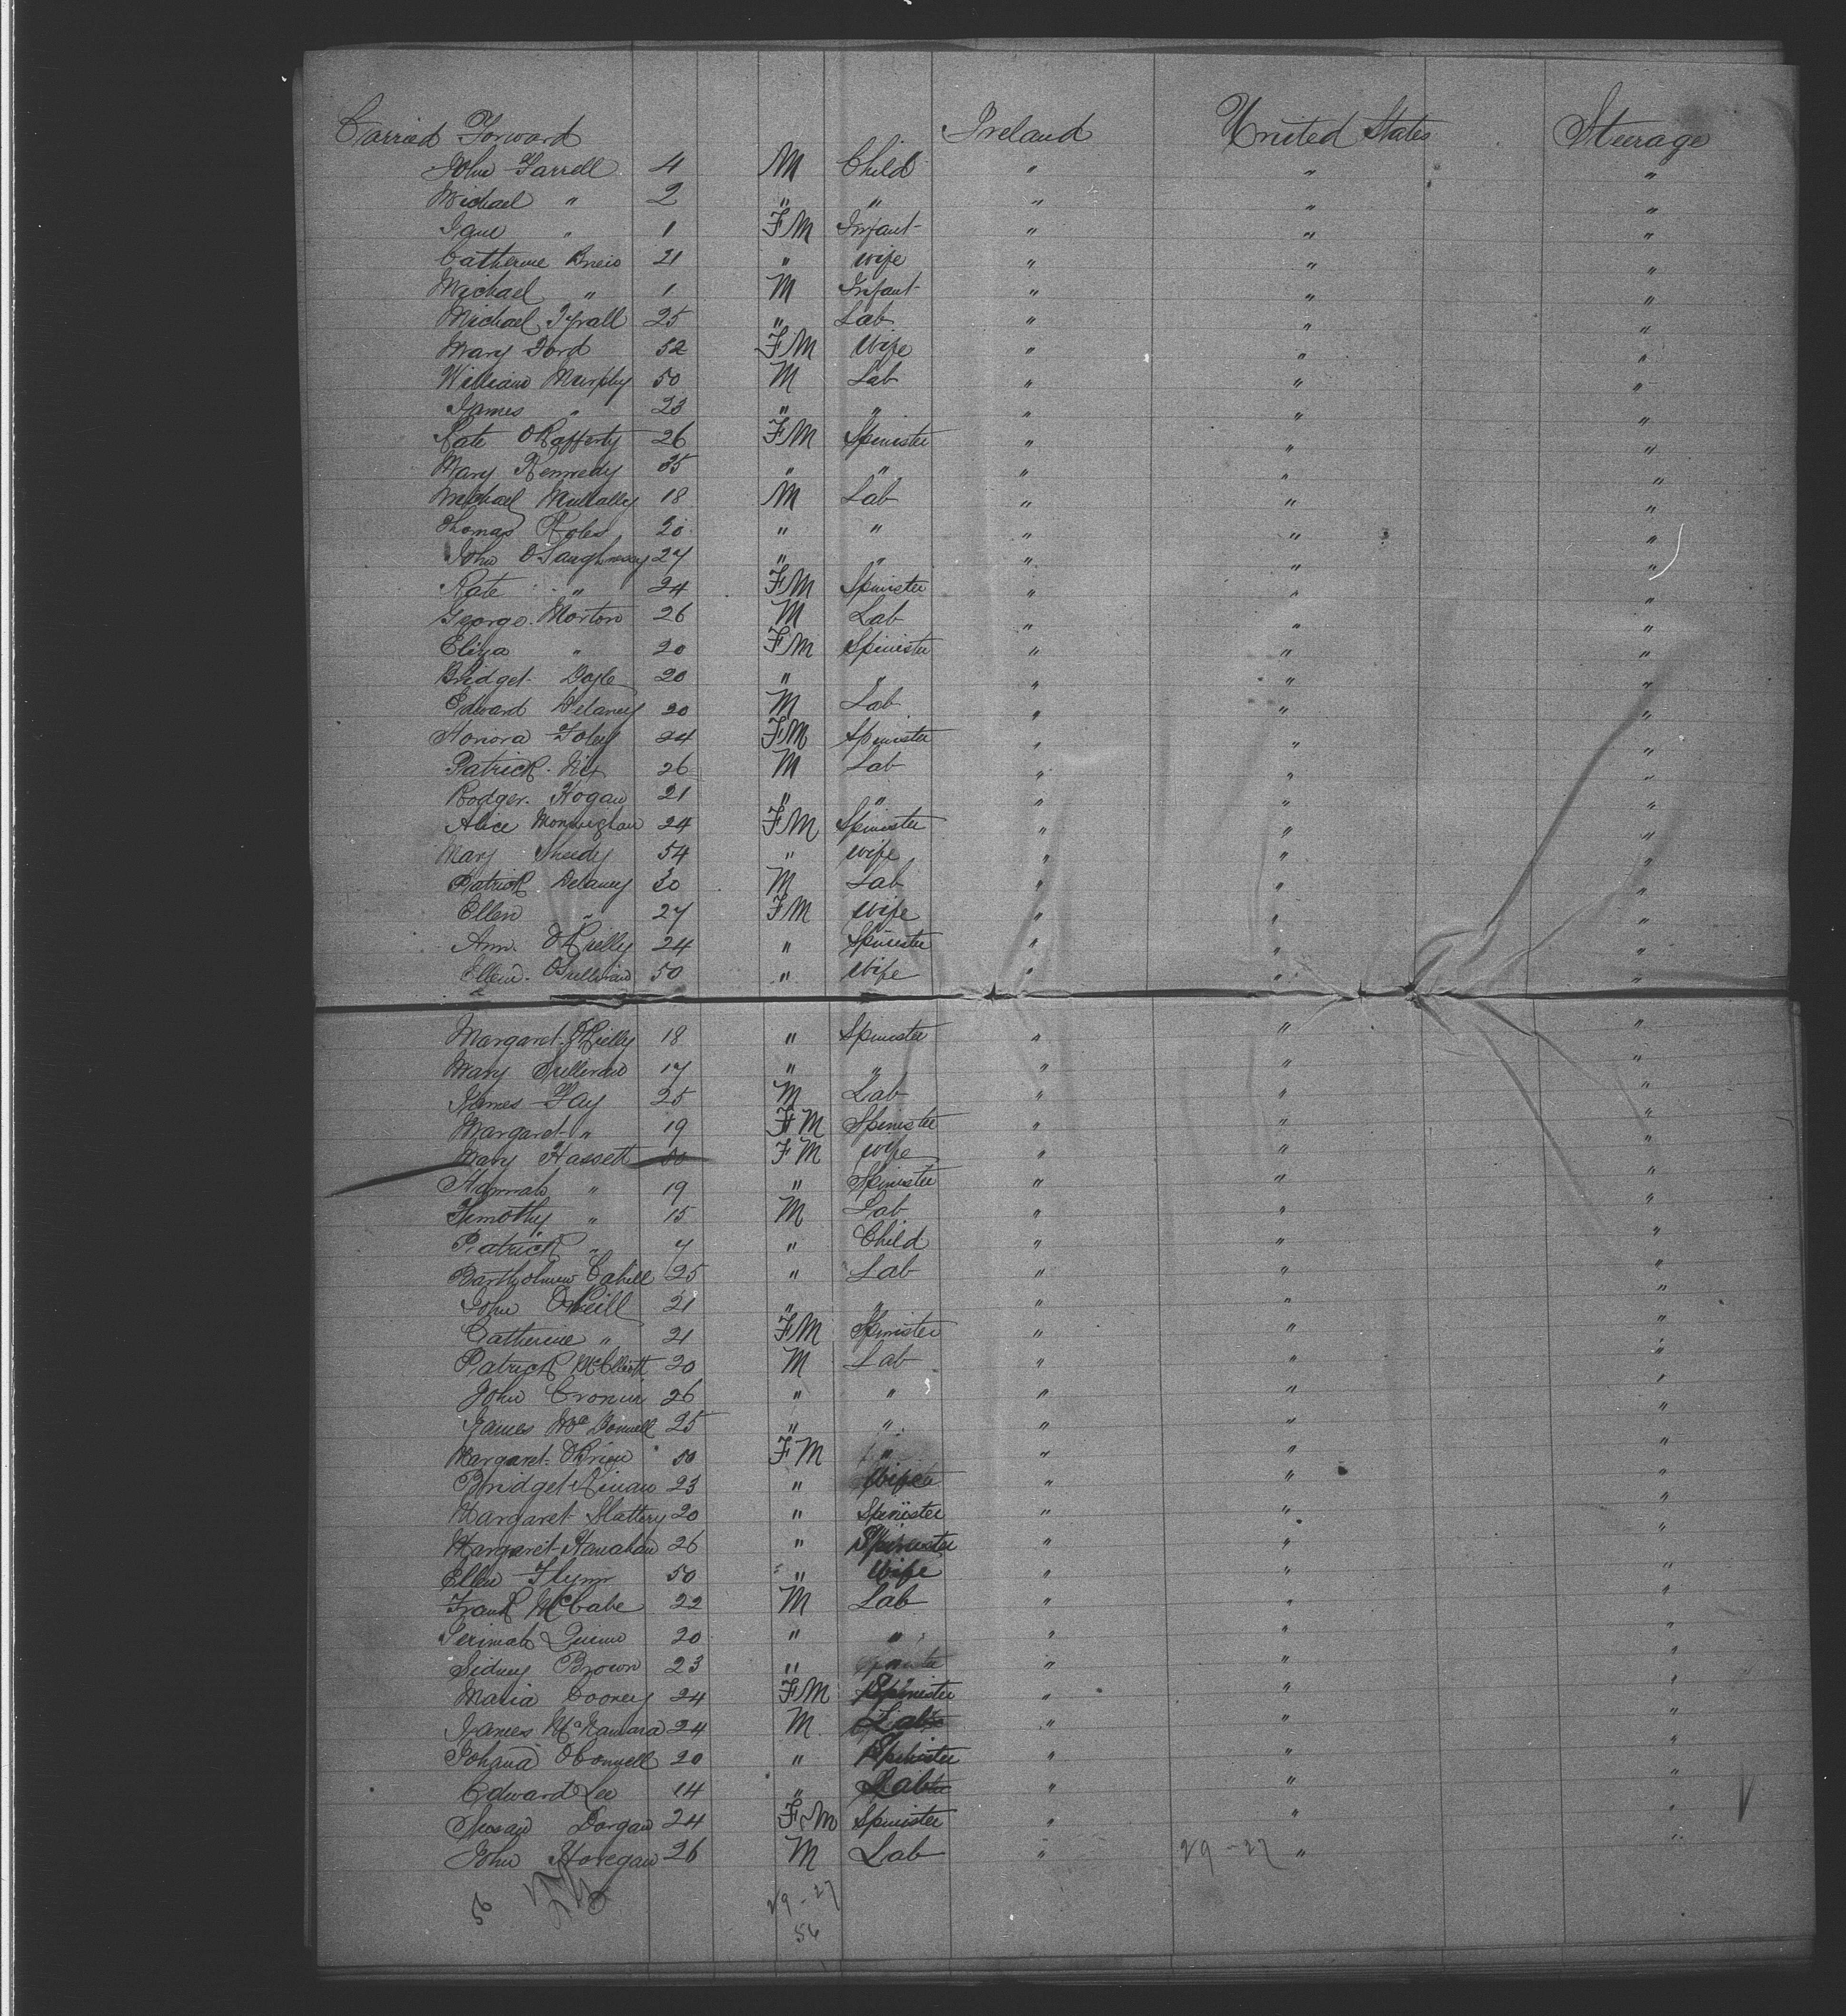 Carried Forward Ireland United States Steerage
John Farrell 4 M Child " " "
Michael " 2 " " " " "
Jane " 1 FM Infant " " "
Catherine 21 " wife " " "
Michael " 1 M Infant " " "
Michael Tyrall 25 " Lab " " "
Mary Ford 52 FM Wife " " "
William Murphy 50 M Lab " " "
James " 23 " " " " "
Kate ORafferty 26 FM Spinister " " "
Mary Kennedy 35 " " " " "
Michael Mullally 18 M Lab " " "
Thomas 20 " " " " "
John OSaughnessy 27 " " " " "
Kate " 24 FM Spinister " " "
George Morton 26 M Lab " " "
Eliza " 20 FM Spinister " " "
Bridget Doyle 20 " " " " "
Edward Delaney 20 M Lab " " "
Honora Foley 24 FM Spinister " " "
Patrick Nix 26 M Lab " " "
Rodger Hogan 21 " " " " "
Alice 24 FM Spinister " " "
Mary Sheedy 54 " wife " " "
Patrick Delaney 30 M Lab " " "
Ellen " 27 FM Wife " " "
Ann ORielly 24 " Spinister " " "
Ellen OSullivan 50 " Wife " " "
Margaret ORielly 18 " Spinister " " "
Mary Sullivan 17 " " " " "
James Fay 25 M Lab " " "
Margaret " 19 FM Spinister " " "
Mary Hassett 50 FM wife " " "
Hannah " 19 " Spinister " " "
Timothy " 15 M Lab " " "
Patrick " 7 " Child " " "
Bartholmew Cahill 25 " Lab " " "
John ONeill 21 " " " " "
Catherine " 21 FM Spinister " " "
Patrick McElliott 20 M Lab " " "
John Cronin 26 " " " " "
James McDonnell 25 " " " " "
Margaret OBrien 50 FM " " " "
Bridget Kinan 23 " Wife " " "
Margaret Slattery 20 " Spinister " " "
Margaret Hanahan 26 " Spinister " " "
Ellen Flynn 50 " Wife " " "
Frank McCabe 22 M Lab " " "
Jerimah Quinn 20 " " " " "
Sidney Brown 23 " " " "
Maria Cooney 24 FM Spinister " " "
James McNamara 24 M Lab " " "
Johana OConnell 20 " Spinister " " "
Edward Lee 14 " Lab " " "
Susan Dorgan 24 FM Spinister " " "
John Horegan 26 M Lab " 29-27 " "
56 29-27
56